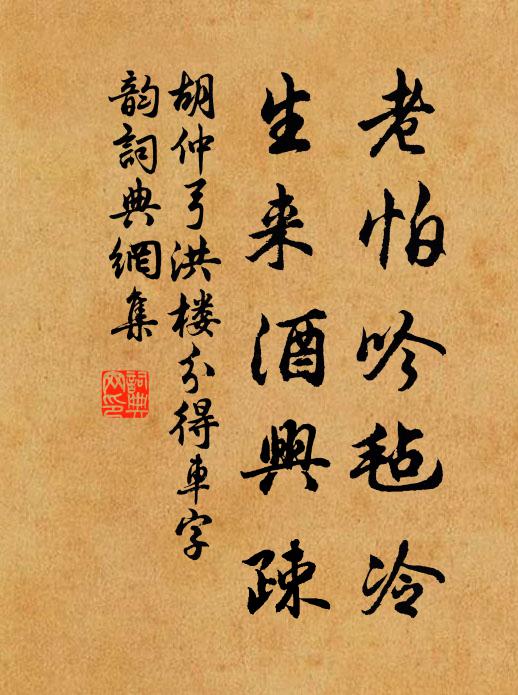 老怕吟毡冷
生来酒興疎
胡仲弓洪楼分得車字
韵詞典網集
詞典网印